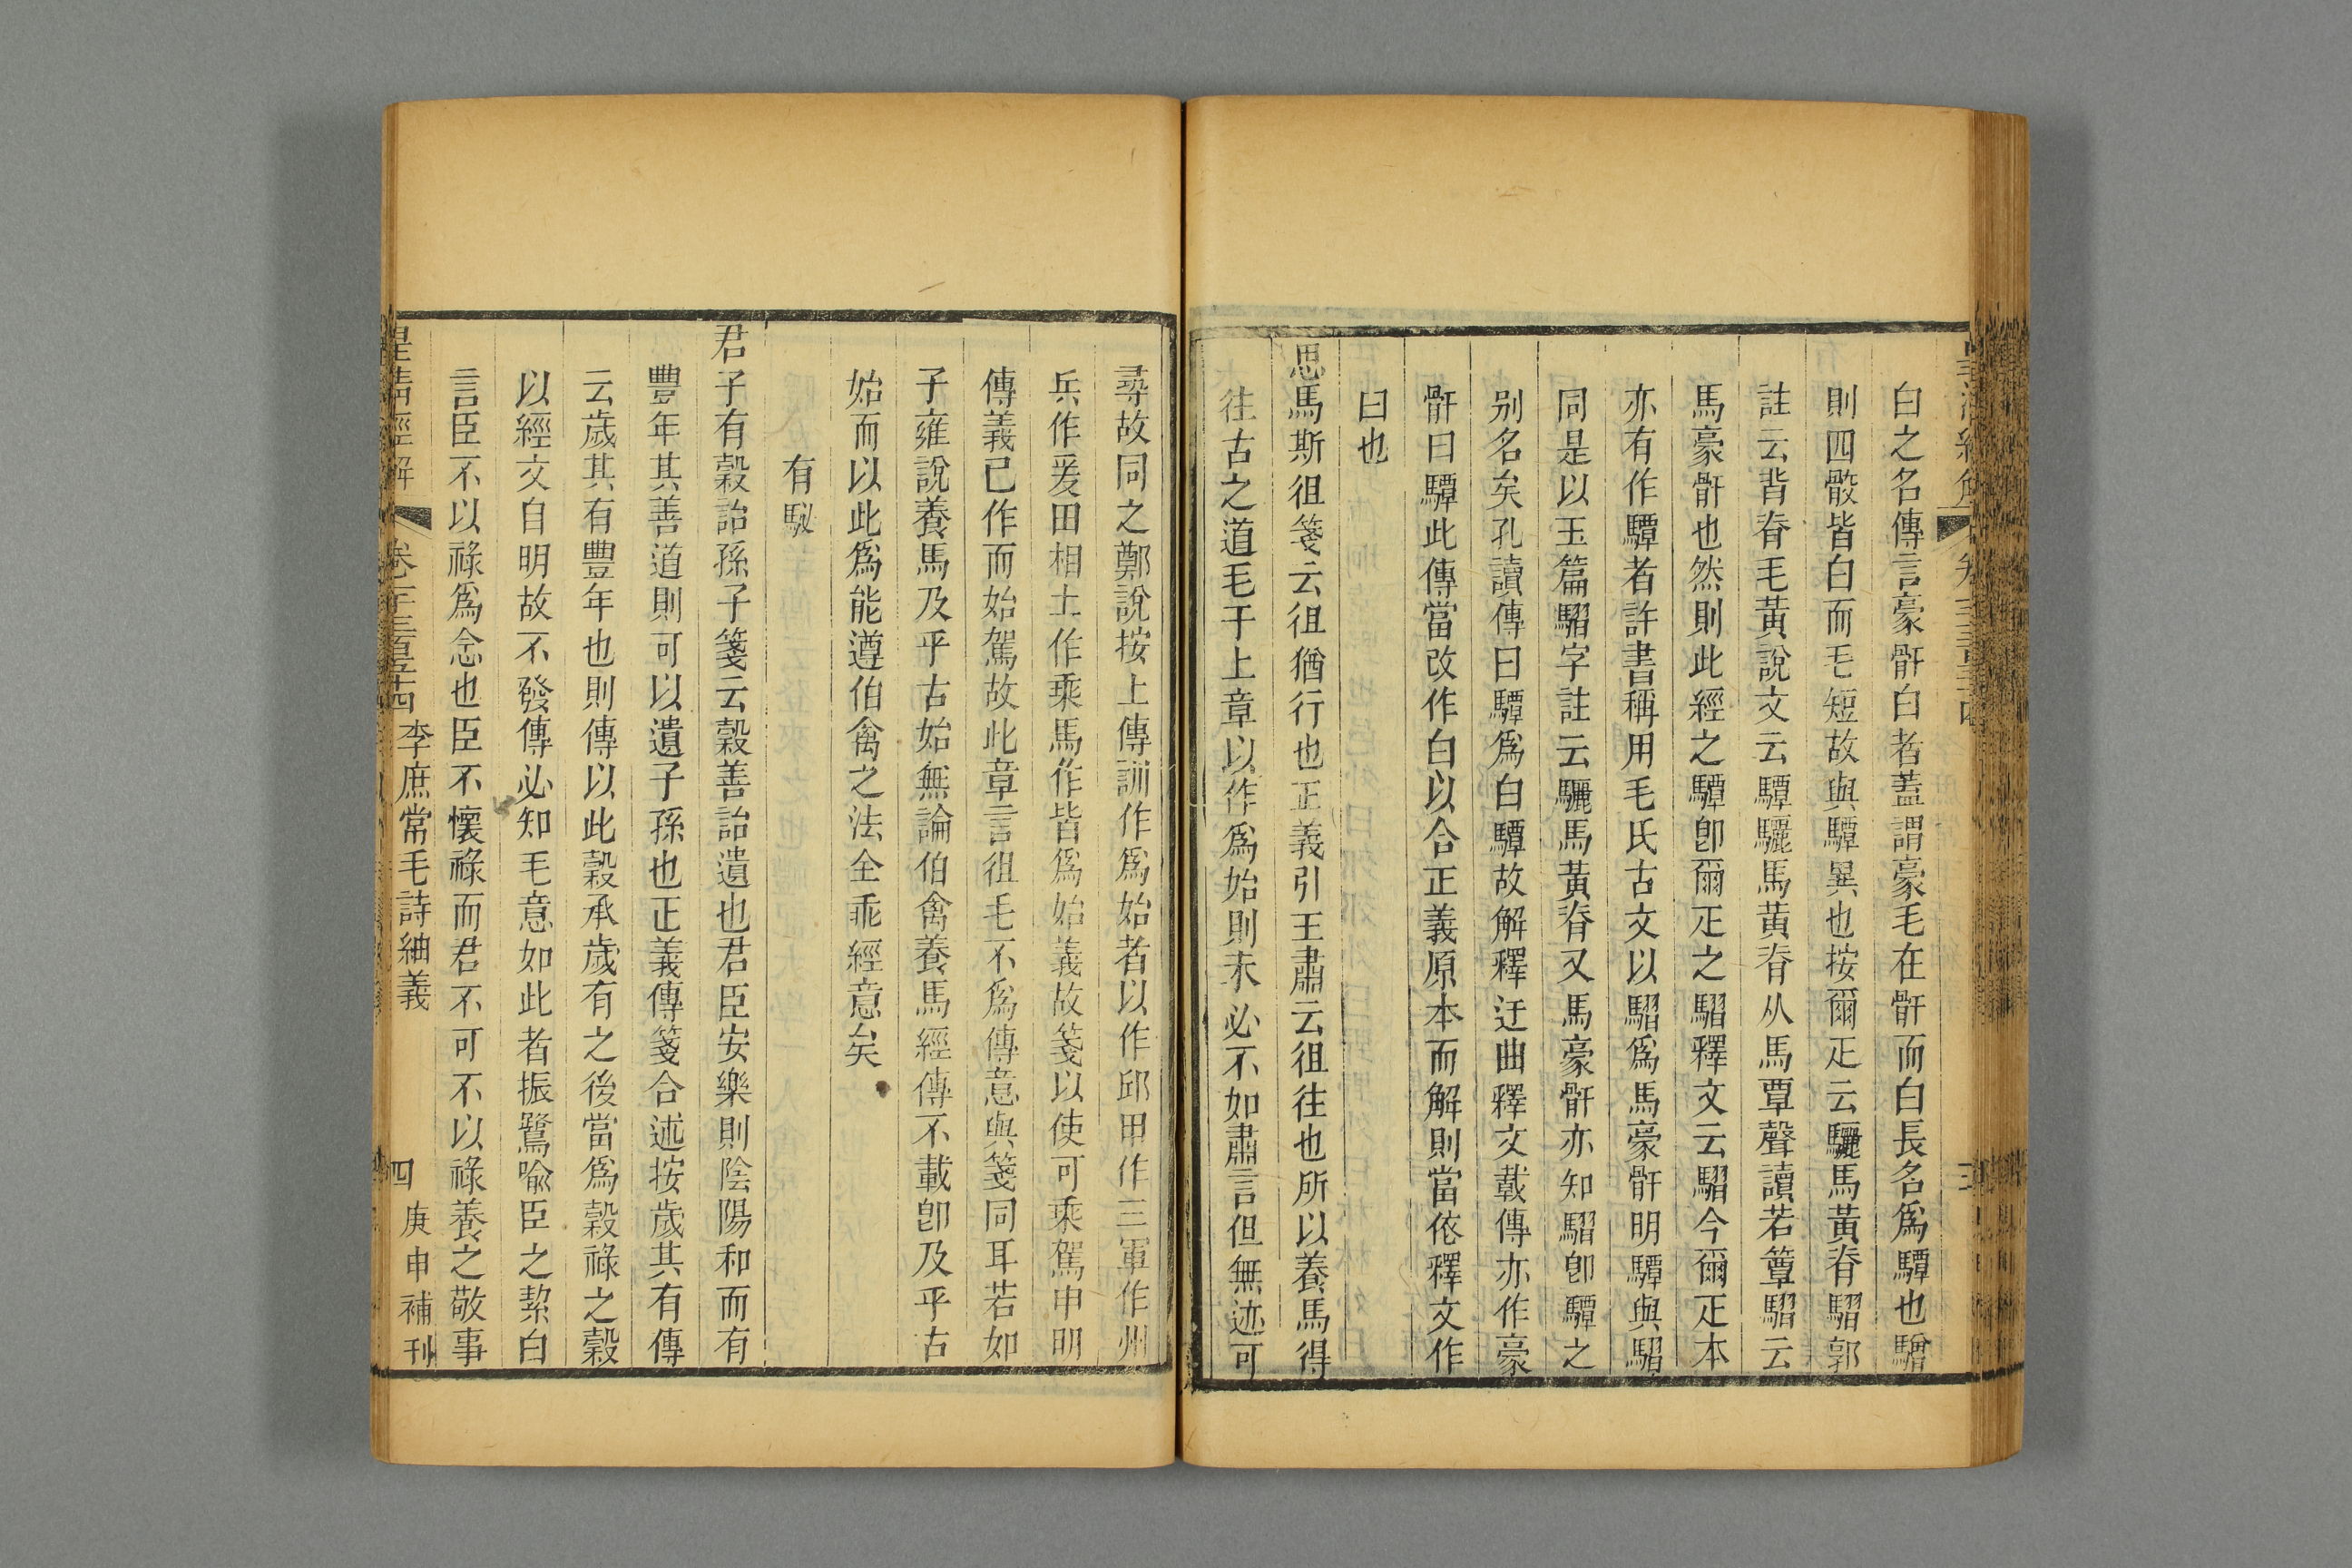 白之名傳言豪骭白者蓋謂豪毛在骭而白長名爲驔也驓
則四骹皆白而毛短故與驔異也按爾疋云驪馬黃脊騽郭
註云背脊毛黃說文云驔驪馬黃脊从馬覃聲讀若簟騽云
馬豪骭也然則此經之驔卽爾疋之騽釋文云騽今爾疋本
亦有作驔者許書稱用毛氏古文以騽爲馬豪骭明驔與騽
同是以玉篇騽字註云驪馬黃脊又馬豪骭亦知騽卽驔之
别名矣孔讀傳曰驔爲白驔故解釋迂曲釋文載傳亦作豪
骭曰驔此傳當改作白以合正義原本而解則當依釋文作
曰也
思馬斯徂箋云徂猶行也正義引王肅云徂往也所以養馬得
往古之道毛于上章以作爲始則未必不如肅言但無迹可
尋故同之鄭說按上傳訓作爲始者以作邱甲作三軍作州
兵作爰田相土作乘馬作皆爲始義故箋以使可乘駕申明
傳義已作而始駕故此章言徂毛不爲傳意與箋同耳若如
子雍說養馬及乎古始無論伯禽養馬經傳不載卽及乎古
始而以此爲能遵伯禽之法全乖經意矣
有駜
君子有穀詒孫子箋云穀善詒遺也君臣安樂則陰陽和而有
豐年其善道則可以遺子孫也正義傳箋合述按歲其有傳
云歲其有豐年也則傳以此穀承歲有之後當爲穀祿之穀
以經文自明故不發傳必知毛意如此者振鷺喻臣之絜白
言臣不以祿爲念也臣不懷祿而君不可不以祿養之敬事
皇清經解 卷一千三百五十四 李庶常毛詩紬義 四 庚申補刊